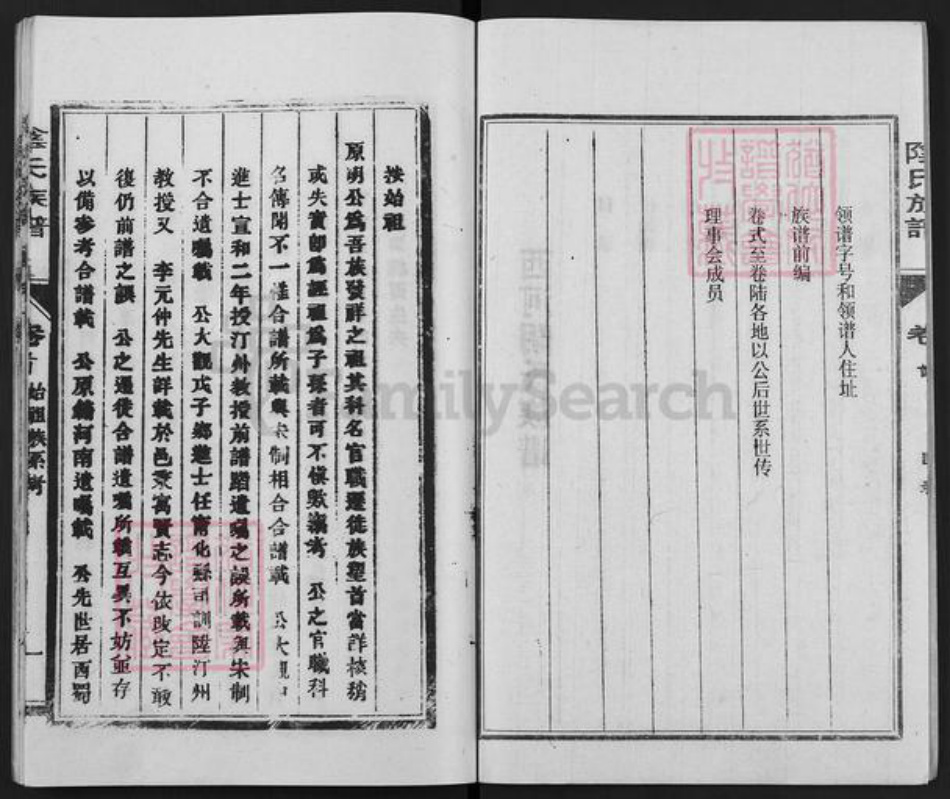 领谱字号和领谱人住址
族谱前编
卷式至卷陆各地以公后世系世传
理事会成员
氏族譜
按始祖
原明公爲吾族發祥之祖其科名官職遷徒族塋首當詳核稍
或失實卽爲誣祖爲子孫者可不愼歟 公之官職科
名傳聞不一惟合譜所載與宋制相合合譜載 公大觀
進士宣和二年授汀州教授前譜蹈遺囑之誤所載與宋制
不合遺囑載 公大觀戊子鄉進士任甯化縣司訓陞汀州
教授又 李元仲先生詳載於邑乘寓賢志今依改定不敢
復仍前譜之誤 公之遷徒合譜遺囑所載互異不妨並存
以備參考合譜載 公原籍河南遺囑載 公先世居西蜀
氏族譜
卷首 始祖族系考
FamilySearch